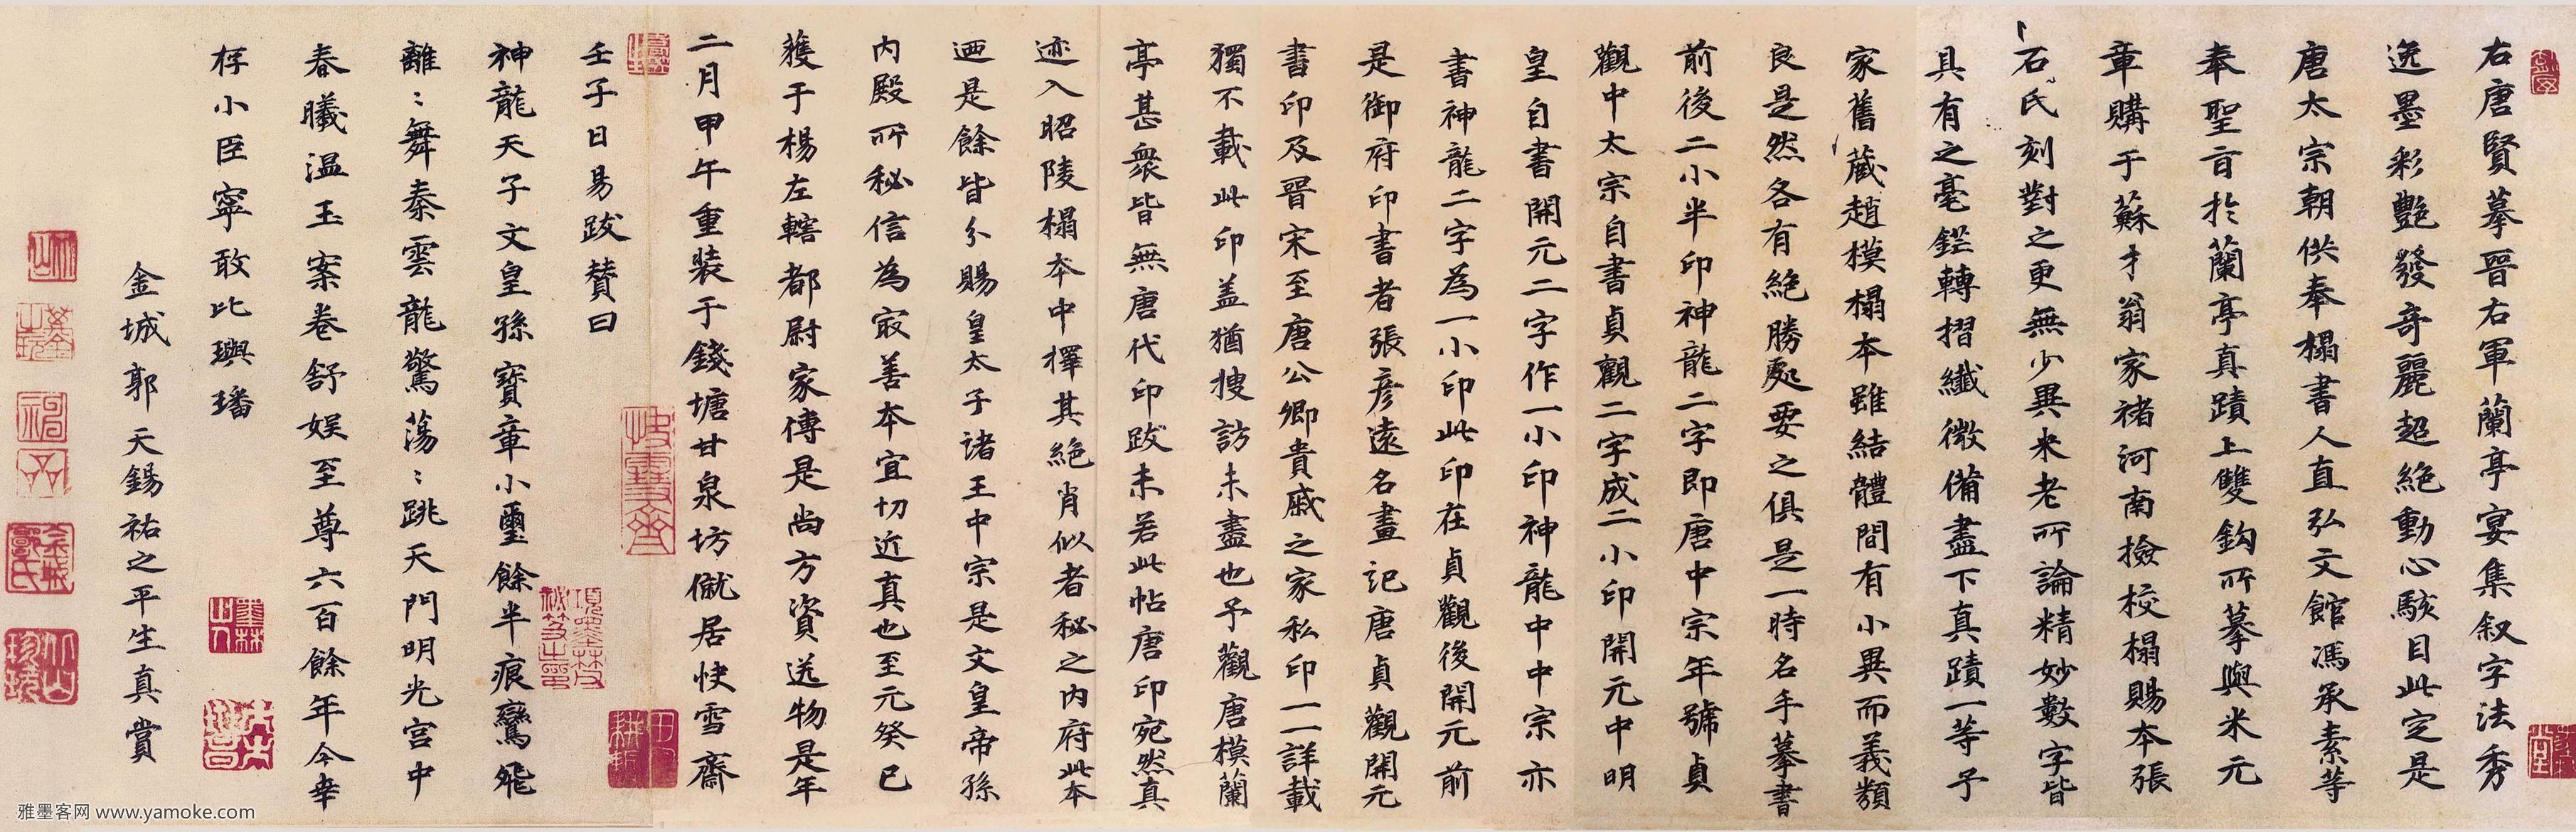 右唐賢摹晉右軍蘭亭宴集叙字法秀
逸墨彩艷發奇麗超絕動心駭目此定是
唐太宗朝供奉榻書人直弘文館馮承素等
奉聖旨於蘭亭真蹟上雙鈎所摹與米元
章購于蘇才翁家褚河南檢校榻賜本張
石氏刻對之更無少異米老所論精妙數字皆
具有之毫鋩轉摺纖微備盡下真蹟一等予
家舊藏趙模榻本雖結體間有小異而義類
良是然各有絕勝處要之俱是一時名手摹書
前後二小半印神龍二字即唐中宗年號貞
觀中太宗自書貞觀二字成二小印開元中明
皇自書開元二字作一小印神龍中中宗亦
書神龍二字為一小印此印在貞觀後開元前
是御府印書者張彦遠名畫記唐貞觀開元
書印及晉宋至唐公卿貴戚之家私印一一詳載
獨不載此印盖猶搜訪未盡也予觀唐模蘭
亭甚衆皆無唐代印跋未若此帖唐印宛然真
迹入昭陵榻本中擇其絕肖似者秘之内府此本
迺是餘皆分賜皇太子諸王中宗是文皇帝孫
内殿所秘信為㝡善本宜切近真也至元癸巳
獲于楊左轄都尉家傳是尚方資送物是年
二月甲午重裝于錢塘甘泉坊僦居快雪齋
壬子日易跋賛曰
神龍天子文皇孫寶章小璽餘半痕鸞飛
離〻舞秦雲龍驚蕩〻跳天門明光宫中
春曦温玉案卷舒娱至尊六百餘年今幸
存小臣寧敢比璵璠
金城郭天錫祐之平生真賞
雅墨客网 www.yamoke.com